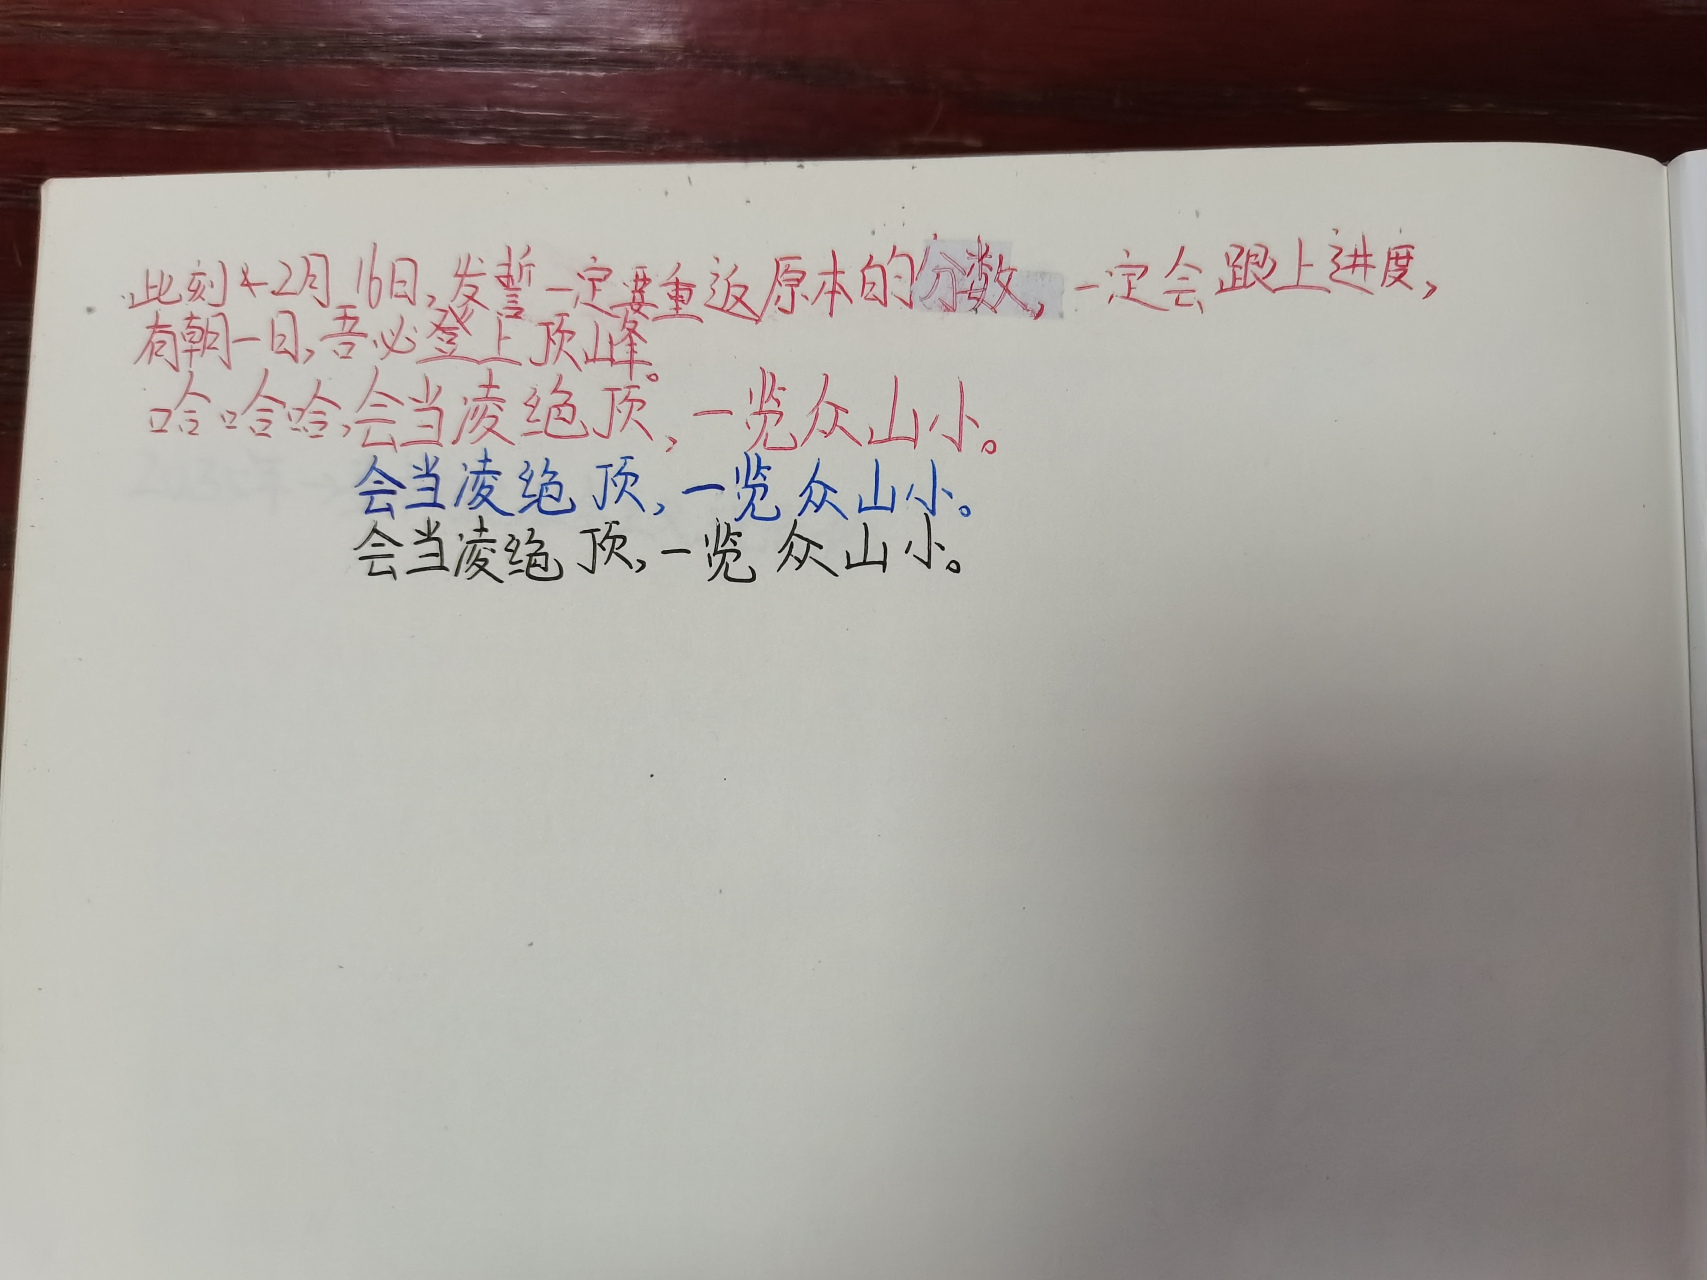 此刻是2月16日,发誓一定要重返原本的分数,一定会跟上进度,
有朝一日,吾必登上顶山峰。
哈哈哈,会当凌绝顶,一览众山小。
会当凌绝顶,一览众山小。
会当凌绝顶,一览众山小。